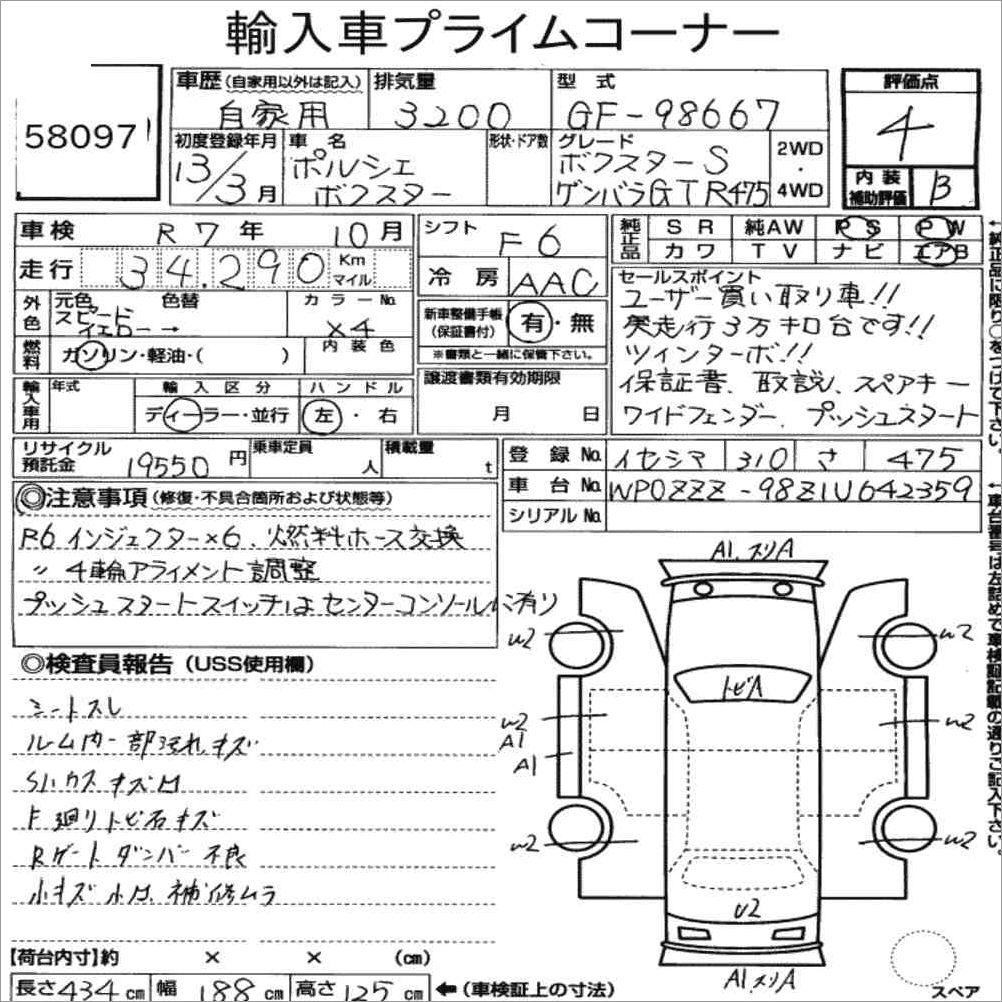 輸入車プライムコーナー
58097
車歴(自家用以外は記入) 自家用
排気量 3200
型式 GF-98667
評価点 4
初度登録年月 13/3月
車名 ポルシェ ボクスター
形状・ドア数
グレード ボクスターS
ゲンバラGTR475
2WD・4WD
内装補助評価 B
車検 R7年 10月
シフト F6
純正品 SR 純AW PS PW
カワ TV ナビ エアB
走行 34,290 Km マイル
冷房 AAC
外色 元色 スピードイエロー→ 色替
カラーNo. X4
燃料 ガソリン・軽油・( )
内装色
新車整備手帳(保証書付) 有・無
※書類と一緒に保管下さい。
セールスポイント
ユーザー買い取り車!!
実走行3万キロ台です!!
ツインターボ!!
保証書、取説、スペアキー
ワイドフェンダー、プッシュスタート
輸入車用 年式
輸入区分 ディーラー・並行
ハンドル 左・右
譲渡書類有効期限 月 日
リサイクル預託金 19550円
乗車定員 人
積載量 t
登録No. イセシマ 310 さ 475
車台No. WP0ZZZ-98Z1U642359
シリアルNo.
◎注意事項(修復・不具合箇所および状態等)
R6 インジェクター×6、燃料ホース交換
〃 4輪アライメント調整
プッシュスタートスイッチはセンターコンソールに有り
◎検査員報告(USS使用欄)
シートスレ
ルーム内一部汚れキズ
キズ凹
F廻りトビ石キズ
Rゲートダンパー不良
小キズ小凹、補修ムラ
A1.スリA
U2
U2
トビA
U2
A1
A1
U2
U2
U2
U2
A1.スリA
スペア
【荷台内寸】約 × × (cm)
長さ434cm 幅188cm 高さ125cm ←(車検証上の寸法)
←純正品に限り○をつけて下さい。
←車台番号は左詰めで車検証記載の通りご記入下さい。